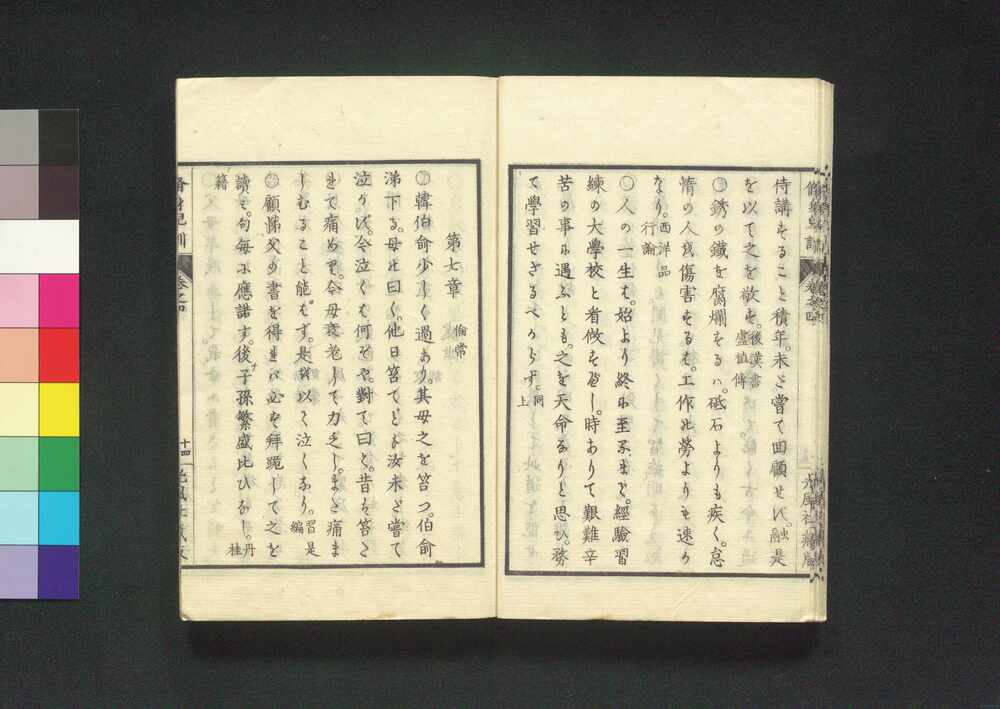 侍講すること積年。未ど嘗て回顧せず。融是
を以て之を敬す。後漢書盧植傳
○銹の鐵を腐爛する〻。砥石よりも疾く。怠
惰の人を傷害するも。工作の勞よりも速か
なり。西洋品行論
○人の一生も。始より終に至るまで。經驗習
練の大學校と看做をべし。時ありて艱難辛
苦の事に遇ふとも。之を天命なりと思ひ。務
て學習せざるべからず。同上
第七章 倫常
○韓伯俞少しく過あり。其母之を笞つ。伯俞
涕下る。母の曰く。他日笞てども汝未ど嘗て
泣かず。今泣くも何ぞや。對て曰く。昔も笞る
きて痛めり。今母衰老して力乏し。まさ痛ま
しむること能はず。是を以く泣くなり。習是編
○顧悌父の書を得れば必を拜跪して之を
讀む。句毎に應諾す。後子孫繁盛比ひなし。丹桂
籍
十四